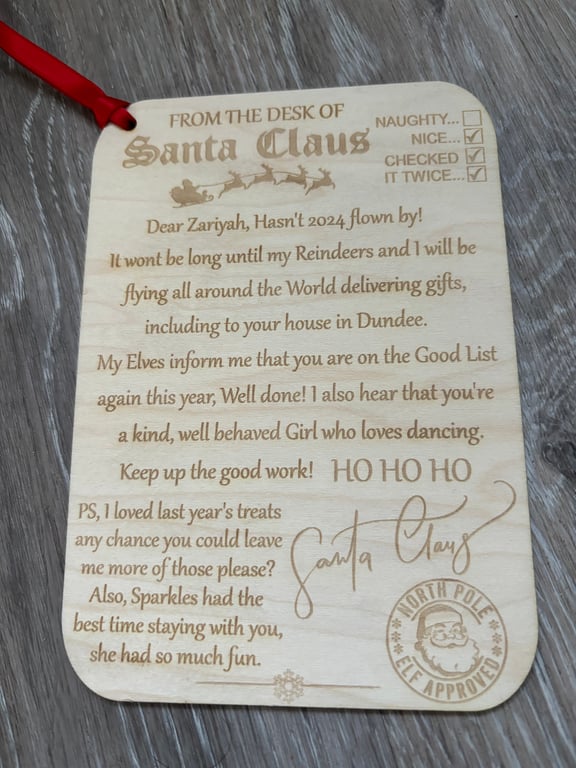 FROM THE DESK OF
Santa Claus
NAUGHTY...
NICE...
CHECKED
IT TWICE...
Dear Zariyah, Hasn't 2024 flown by!
It wont be long until my Reindeers and I will be
flying all around the World delivering gifts,
including to your house in Dundee.
My Elves inform me that you are on the Good List
again this year, Well done! I also hear that you're
a kind, well behaved Girl who loves dancing.
Keep up the good work! HO HO HO
PS, I loved last year's treats
any chance you could leave
me more of those please?
Also, Sparkles had the
best time staying with you,
she had so much fun.
Santa Claus
NORTH POLE
ELF APPROVED